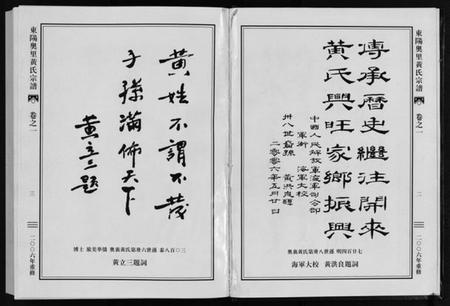 傳承歷史繼往開來
黃氏興旺家鄉振興
中國人民解放軍海軍司令部
軍銜 海軍大校
卅八世裔孫 黃洪良題
二〇〇六年五月廿日
奧裏黃氏第卅八世孫 明四百廿七
海軍大校 黃洪良題詞
東陽奧里黃氏宗譜
卷之一
二
二〇〇六年重修
黃姓不謂不茂
子孫滿佈天下
黃立三題
博士 旅美華僑 奧裏黃氏第卅六世孫 泰八百〇三
黃立三題詞
東陽奧里黃氏宗譜
卷之一
三
二〇〇六年重修